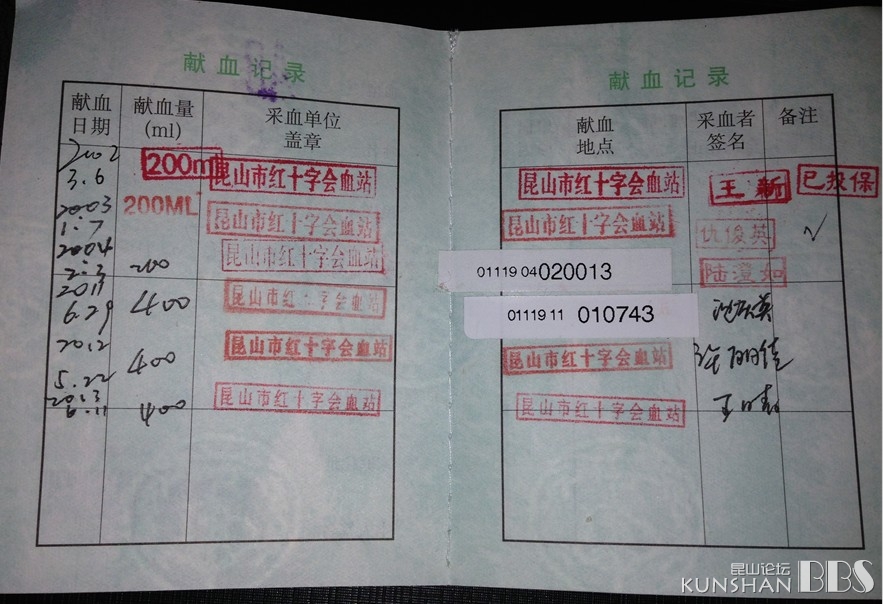 献血记录
献血
日期
献血量
(ml)
采血单位
盖章
2002
3.6
200ml
昆山市红十字会血站
2003
1.7
200ML
昆山市红十字会血站
2004
2.3
200
昆山市红十字会血站
2011
6.29
400
昆山市红十字会血站
2012
5.22
400
昆山市红十字会血站
2013
6.11
400
昆山市红十字会血站
献血记录
献血
地点
采血者
签名
备注
昆山市红十字会血站
王新
已投保
昆山市红十字会血站
仇俊英
√
01119 04020013
01119 11 010743
昆山市红十字会血站
昆山市红十字会血站
昆山论坛
KUNSHAN BBS